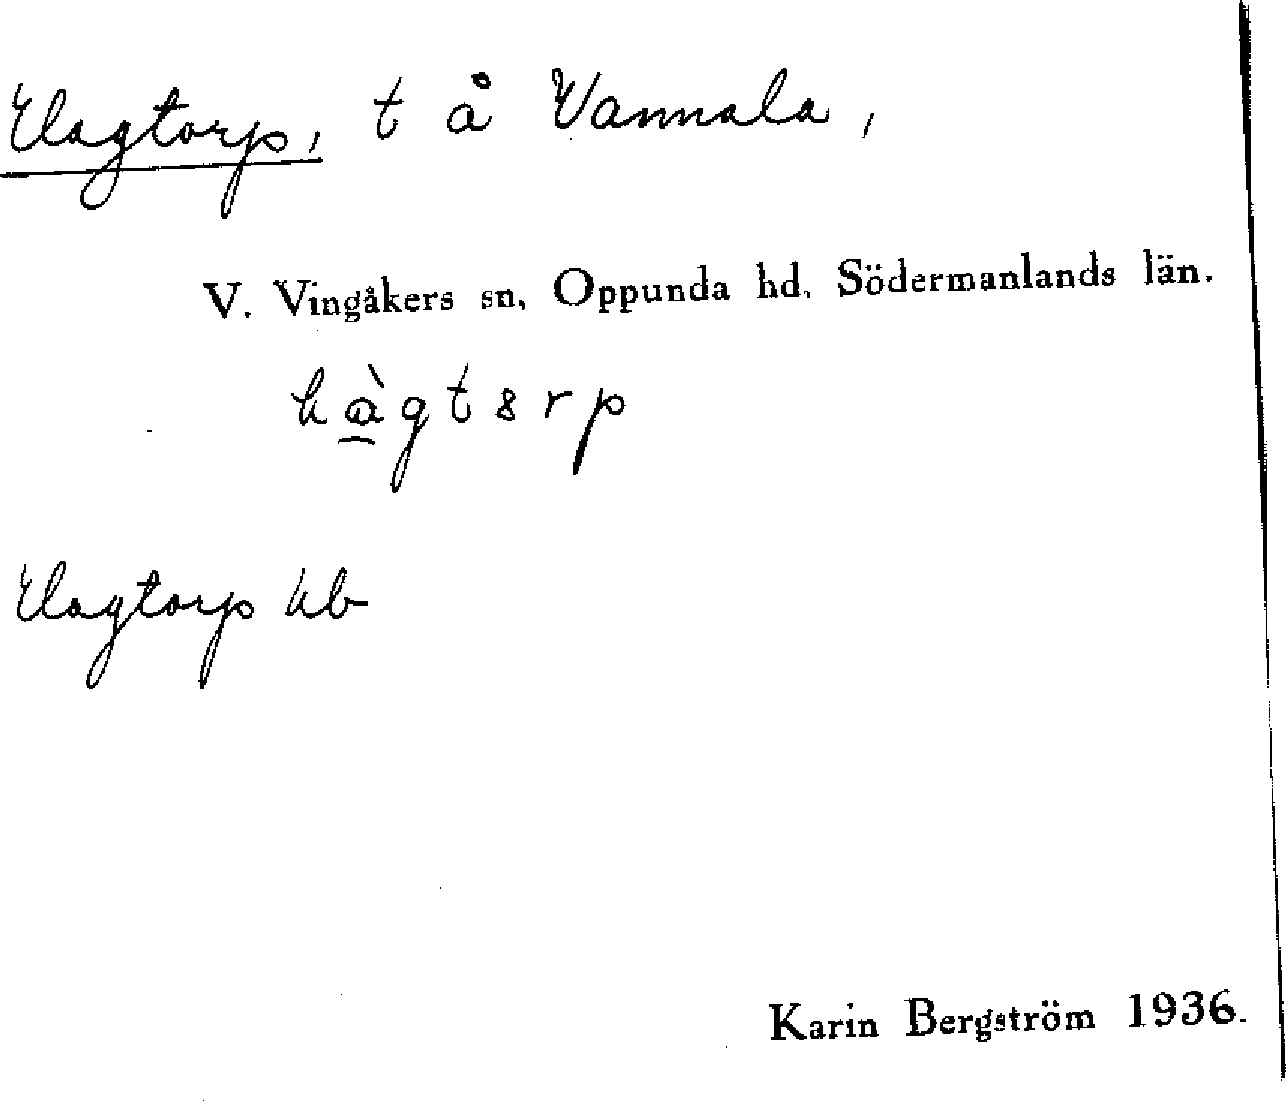 Hagtorp, t å Vannala,
V. Vingåkers sn, Oppunda hd, Södermanlands län.
hàgtsrp
Hagtorp kb
Karin Bergström 1936.